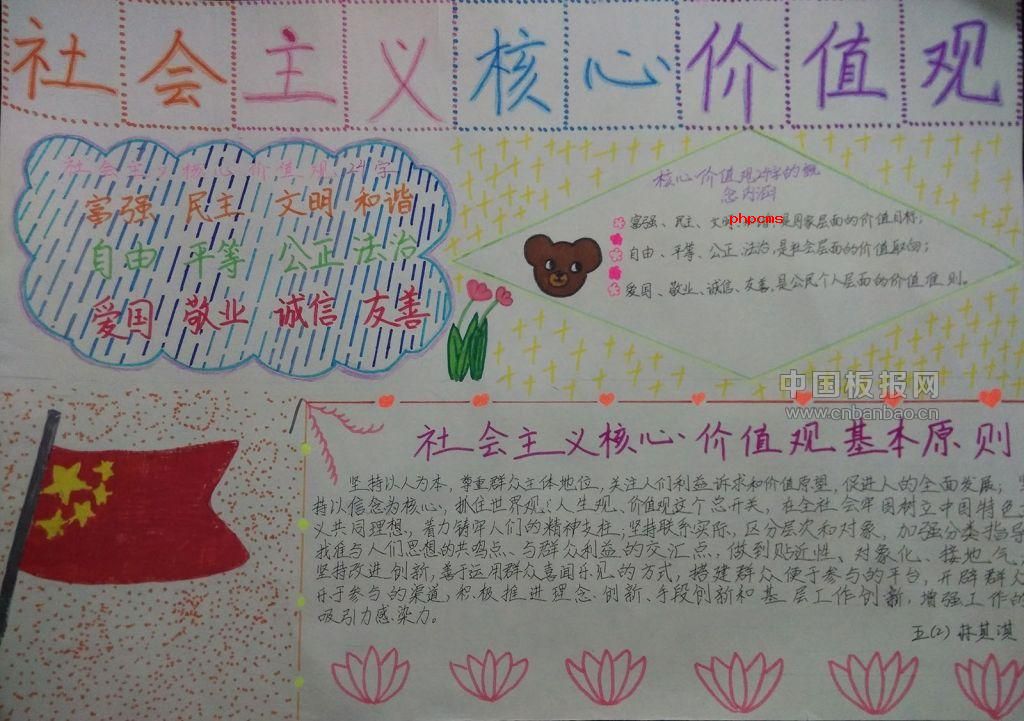 社会主义核心价值观
社会主义核心价值观24字
富强 民主 文明 和谐
自由 平等 公正 法治
爱国 敬业 诚信 友善
核心价值观24字的概
念内涵
富强、民主、文明 phpcms 是国家层面的价值目标;
自由、平等、公正、法治,是社会层面的价值取向;
爱国、敬业、诚信、友善,是公民个人层面的价值准则。
中国板报网
www.cnbanbao.cn
社会主义核心价值观基本原则
坚持以人为本,尊重群众主体地位,关注人们利益诉求和价值愿望,促进人的全面发展;
持以信念为核心,抓住世界观、人生观、价值观这个总开关,在全社会牢固树立中国特色
义共同理想,着力铸牢人们的精神支柱;坚持联系实际,区分层次和对象,加强分类指导
找准与人们思想的共鸣点、与群众利益的交汇点,做到贴近性、对象化、接地气
坚持改进创新,善于运用群众喜闻乐见的方式,搭建群众便于参与的平台,开辟群众
乐于参与的渠道,积极推进理念创新、手段创新和基层工作创新,增强工作的
吸引力感染力。
五(2) 其淇